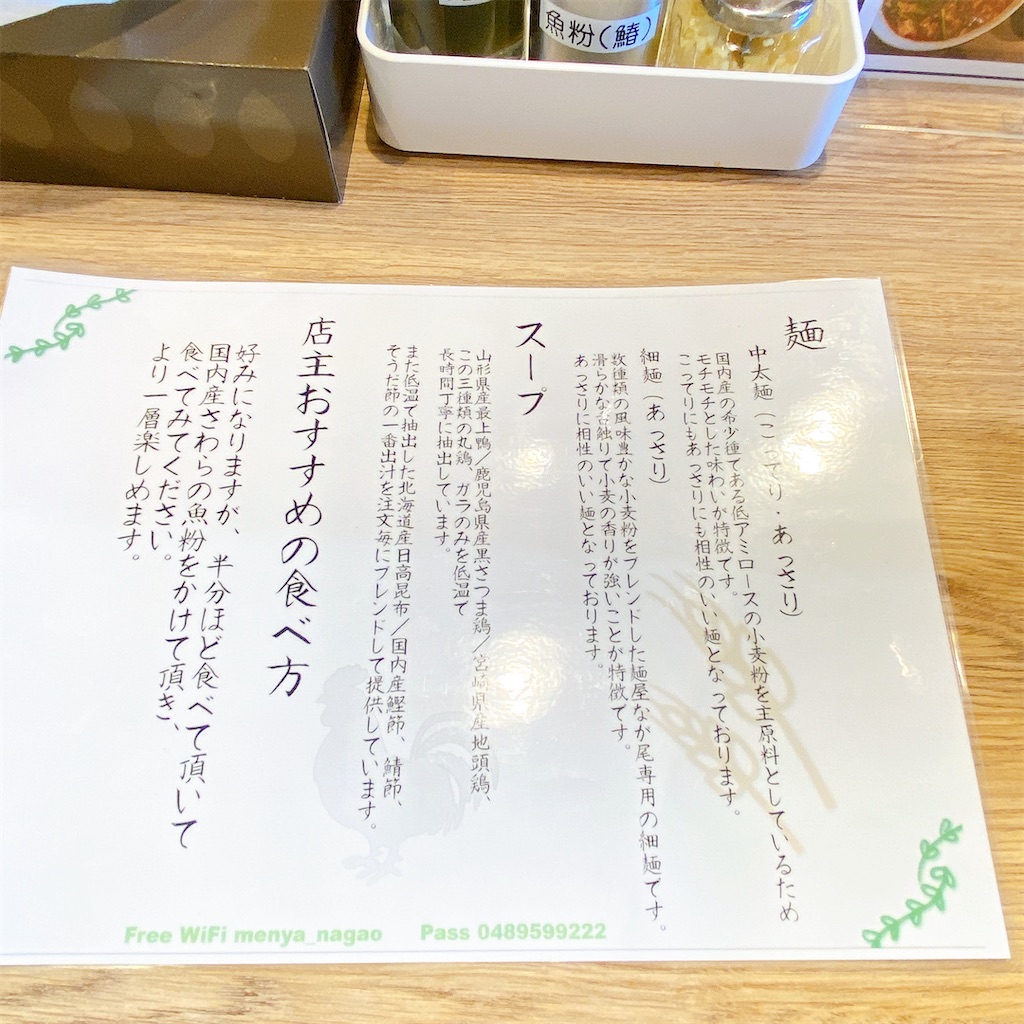 魚粉(鰆)
麺
中太麺(こってり・あっさり)
国内産の希少種である低アミロースの小麦粉を主原料としているため
モチモチとした味わいが特徴です。
こってりにもあっさりにも相性のいい麺となっております。
細麺(あっさり)
数種類の風味豊かな小麦粉をブレンドした麺屋なが尾専用の細麺です。
滑らかな舌触りで小麦の香りが強いことが特徴です。
あっさりに相性のいい麺となっております。
スープ
山形県産最上鴨/鹿児島県産黒さつま鶏/宮崎県産地頭鶏、
この三種類の丸鶏、ガラのみを低温で
長時間丁寧に抽出しています。
また低温で抽出した北海道産日高昆布/国内産鰹節、鯖節、
そうだ節の一番出汁を注文毎にブレンドして提供しています。
店主おすすめの食べ方
好みになりますが、半分ほど食べて頂いて
国内産さわらの魚粉をかけて頂き、
食べてみてください。
より一層楽しめます。
Free WiFi menya_nagao Pass 0489599222